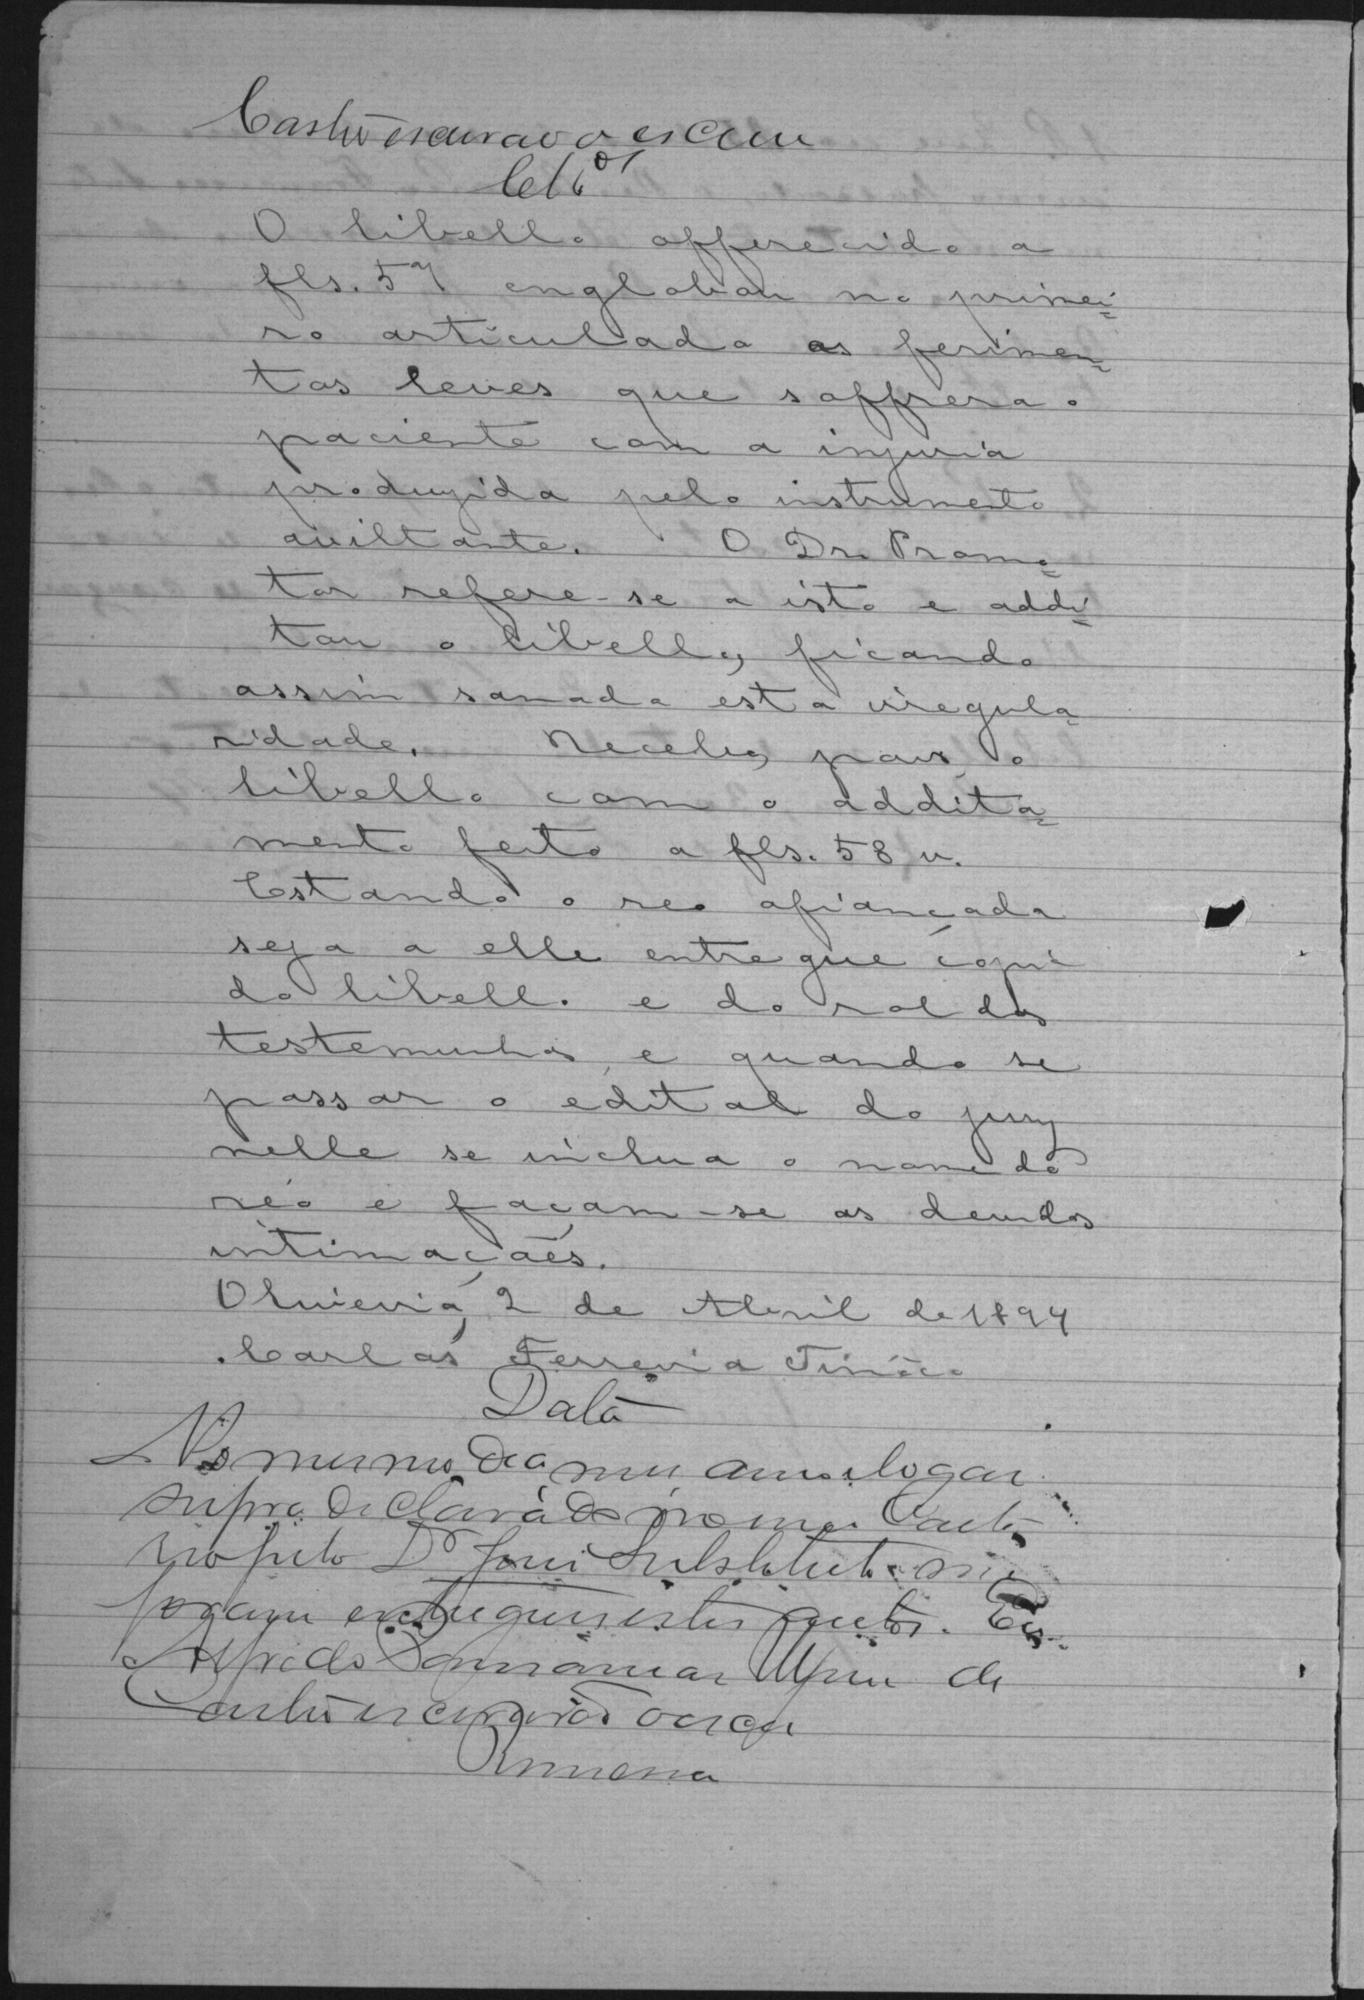 Castro escrivão o escrevi
Clsos
O libello offerecido a
fls. 57 englobou no primei=
ro articulado os ferimen=
tos leves que soffrera o
paciente com a injuria
produzida pelo instrumento
aviltante. O Dr. Promo=
tor refere-se a isto e addi=
tou o libello, ficando
assim sanada esta irregula=
ridade. Recebo, pois, o
libello com o addita=
mento feito a fls. 58 v.
Estando o reo afiançado
seja a elle entregue cópia
do libello e do rol das
testemunhas, e quando se
passar o edital do jury
nelle se inclua o nome do
réo e façam-se as devidas
intimações.
Oliveira, 2 de Abril de 1894
Carlos Ferreira Tinôco
Data
No mesmo dia mez anno e logar
supra declarado em meu Carto
rio pelo Dr Juiz Substituto me
foram entregues estes autos. Eu
Alfredo de
Castro escrivão o escrevi
Remessa